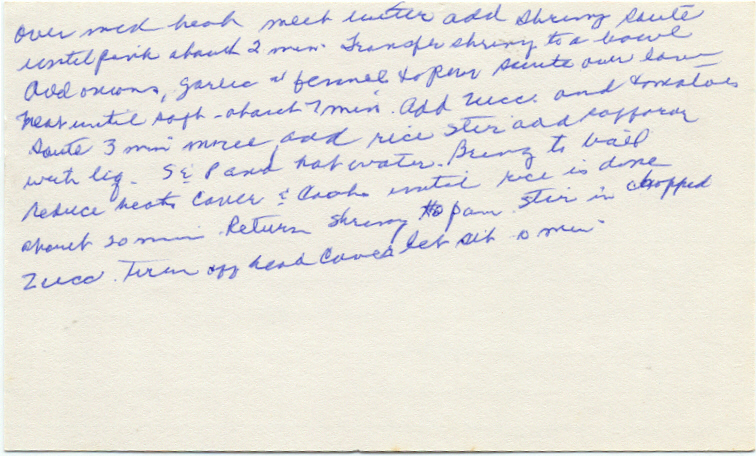 over med heat melt butter add shrimp saute
until pink about 2 min. Transfer shrimp to a bowl
Add onions, garlic & fennel to pan saute over low
heat until soft - about 7 min. Add zucc. and tomatoes
saute 3 min more, add rice stir add saffron
with liq. S & P and hot water. Bring to boil
reduce heat cover & cook until rice is done
about 20 min. Return shrimp to pan stir in chopped
zucc. Turn off head cover let sit 10 min